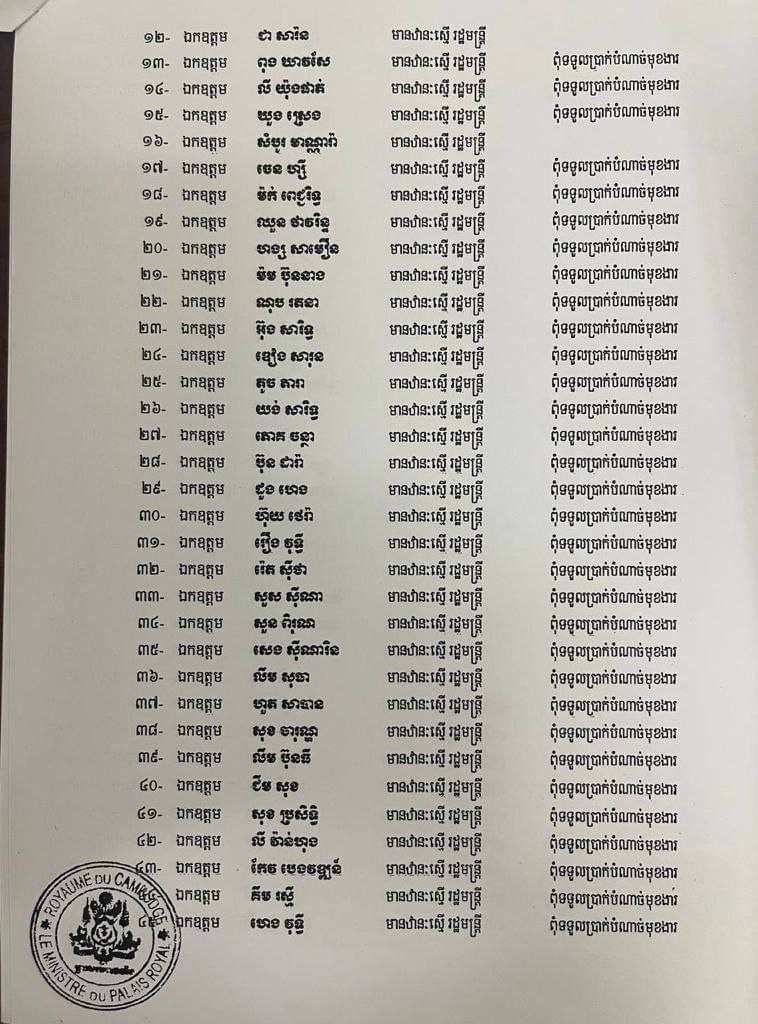 ១២- ឯកឧត្តម ជា សារ៉ន មានឋានៈស្មើ រដ្ឋមន្ត្រី
១៣- ឯកឧត្តម ពុង ឃាវសែ មានឋានៈស្មើ រដ្ឋមន្ត្រី ពុំទទួលប្រាក់បំណាច់មុខងារ
១៤- ឯកឧត្តម លី យ៉ុងផាត់ មានឋានៈស្មើ រដ្ឋមន្ត្រី ពុំទទួលប្រាក់បំណាច់មុខងារ
១៥- ឯកឧត្តម ឃួង ស្រេង មានឋានៈស្មើ រដ្ឋមន្ត្រី ពុំទទួលប្រាក់បំណាច់មុខងារ
១៦- ឯកឧត្តម សំបូរ មាណ្ណារ៉ា មានឋានៈស្មើ រដ្ឋមន្ត្រី
១៧- ឯកឧត្តម ចេន ហ្សឺ មានឋានៈស្មើ រដ្ឋមន្ត្រី ពុំទទួលប្រាក់បំណាច់មុខងារ
១៨- ឯកឧត្តម ម៉ក់ ពេជ្ររិទ្ធ មានឋានៈស្មើ រដ្ឋមន្ត្រី ពុំទទួលប្រាក់បំណាច់មុខងារ
១៩- ឯកឧត្តម ឈួន ថាវរិន្ទ មានឋានៈស្មើ រដ្ឋមន្ត្រី ពុំទទួលប្រាក់បំណាច់មុខងារ
២០- ឯកឧត្តម ហង្ស សាមឿន មានឋានៈស្មើ រដ្ឋមន្ត្រី ពុំទទួលប្រាក់បំណាច់មុខងារ
២១- ឯកឧត្តម ម៉ម ប៊ុននាង មានឋានៈស្មើ រដ្ឋមន្ត្រី ពុំទទួលប្រាក់បំណាច់មុខងារ
២២- ឯកឧត្តម ណុប រតនា មានឋានៈស្មើ រដ្ឋមន្ត្រី ពុំទទួលប្រាក់បំណាច់មុខងារ
២៣- ឯកឧត្តម អ៊ុង សារិទ្ធ មានឋានៈស្មើ រដ្ឋមន្ត្រី ពុំទទួលប្រាក់បំណាច់មុខងារ
២៤- ឯកឧត្តម ឌៀង សារុន មានឋានៈស្មើ រដ្ឋមន្ត្រី ពុំទទួលប្រាក់បំណាច់មុខងារ
២៥- ឯកឧត្តម តូច តារា មានឋានៈស្មើ រដ្ឋមន្ត្រី ពុំទទួលប្រាក់បំណាច់មុខងារ
២៦- ឯកឧត្តម យង់ សារិទ្ធ មានឋានៈស្មើ រដ្ឋមន្ត្រី ពុំទទួលប្រាក់បំណាច់មុខងារ
២៧- ឯកឧត្តម តោគ ចន្ថា មានឋានៈស្មើ រដ្ឋមន្ត្រី ពុំទទួលប្រាក់បំណាច់មុខងារ
២៨- ឯកឧត្តម ប៊ុន ដារ៉ា មានឋានៈស្មើ រដ្ឋមន្ត្រី ពុំទទួលប្រាក់បំណាច់មុខងារ
២៩- ឯកឧត្តម ដួង ហេង មានឋានៈស្មើ រដ្ឋមន្ត្រី ពុំទទួលប្រាក់បំណាច់មុខងារ
៣០- ឯកឧត្តម ហ៊ុយ ថេរ៉ា មានឋានៈស្មើ រដ្ឋមន្ត្រី ពុំទទួលប្រាក់បំណាច់មុខងារ
៣១- ឯកឧត្តម រឿង វុទ្ធី មានឋានៈស្មើ រដ្ឋមន្ត្រី ពុំទទួលប្រាក់បំណាច់មុខងារ
៣២- ឯកឧត្តម រ៉េត ស៊ីថា មានឋានៈស្មើ រដ្ឋមន្ត្រី ពុំទទួលប្រាក់បំណាច់មុខងារ
៣៣- ឯកឧត្តម សួស ស៊ីណា មានឋានៈស្មើ រដ្ឋមន្ត្រី ពុំទទួលប្រាក់បំណាច់មុខងារ
៣៤- ឯកឧត្តម សួន ពិរុណ មានឋានៈស្មើ រដ្ឋមន្ត្រី ពុំទទួលប្រាក់បំណាច់មុខងារ
៣៥- ឯកឧត្តម សេង ស៊ីណារិន មានឋានៈស្មើ រដ្ឋមន្ត្រី ពុំទទួលប្រាក់បំណាច់មុខងារ
៣៦- ឯកឧត្តម លឹម សុធា មានឋានៈស្មើ រដ្ឋមន្ត្រី ពុំទទួលប្រាក់បំណាច់មុខងារ
៣៧- ឯកឧត្តម ហួត សាបាន មានឋានៈស្មើ រដ្ឋមន្ត្រី ពុំទទួលប្រាក់បំណាច់មុខងារ
៣៨- ឯកឧត្តម សុខ ចារុណ្ណ មានឋានៈស្មើ រដ្ឋមន្ត្រី ពុំទទួលប្រាក់បំណាច់មុខងារ
៣៩- ឯកឧត្តម លឹម ប៊ុនធី មានឋានៈស្មើ រដ្ឋមន្ត្រី ពុំទទួលប្រាក់បំណាច់មុខងារ
៤០- ឯកឧត្តម ជឹម សុខ មានឋានៈស្មើ រដ្ឋមន្ត្រី ពុំទទួលប្រាក់បំណាច់មុខងារ
៤១- ឯកឧត្តម សុខ ប្រសិទ្ធិ មានឋានៈស្មើ រដ្ឋមន្ត្រី ពុំទទួលប្រាក់បំណាច់មុខងារ
៤២- ឯកឧត្តម លី វ៉ាន់ហុង មានឋានៈស្មើ រដ្ឋមន្ត្រី ពុំទទួលប្រាក់បំណាច់មុខងារ
៤៣- ឯកឧត្តម កែវ បេងវឌ្ឍន៍ មានឋានៈស្មើ រដ្ឋមន្ត្រី ពុំទទួលប្រាក់បំណាច់មុខងារ
ឯកឧត្តម គីម រស្មី មានឋានៈស្មើ រដ្ឋមន្ត្រី ពុំទទួលប្រាក់បំណាច់មុខងារ
៤៥- ឯកឧត្តម ហេង វុទ្ធី មានឋានៈស្មើ រដ្ឋមន្ត្រី ពុំទទួលប្រាក់បំណាច់មុខងារ
ROYAUME DU CAMBODGE
LE MINISTRE DU PALAIS ROYAL